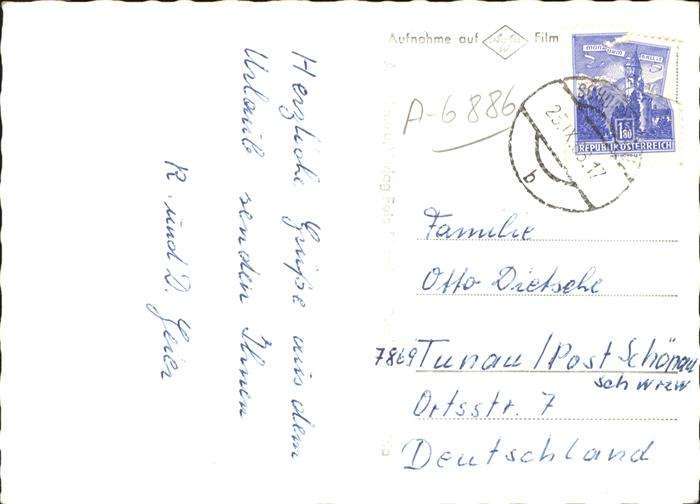 Herzliche Grüße aus dem
Urlaub senden Ihnen
R. und D. Geier
Aufnahme auf Agfa Film
A-6886
1.80
REPUBLIK ÖSTERREICH
25.IX.
17
b
Familie
Otto Dietsche
7869 Tunau / Post Schönau
schwrzw
Ortsstr. 7
Deutschland